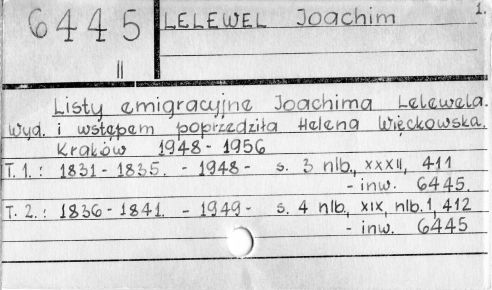 6445
II
LELEWEL Joachim
1.
Listy emigracyjne Joachima Lelewela.
Wyd. i wstępem poprzedziła Helena Więckowska.
Kraków 1948 - 1956
T. 1. : 1831 - 1835. - 1948 - s. 3 nlb., XXXII, 411
- inw. 6445.
T. 2. : 1836 - 1841. - 1949 - s. 4 nlb., XIX, nlb. 1, 412
- inw. 6445